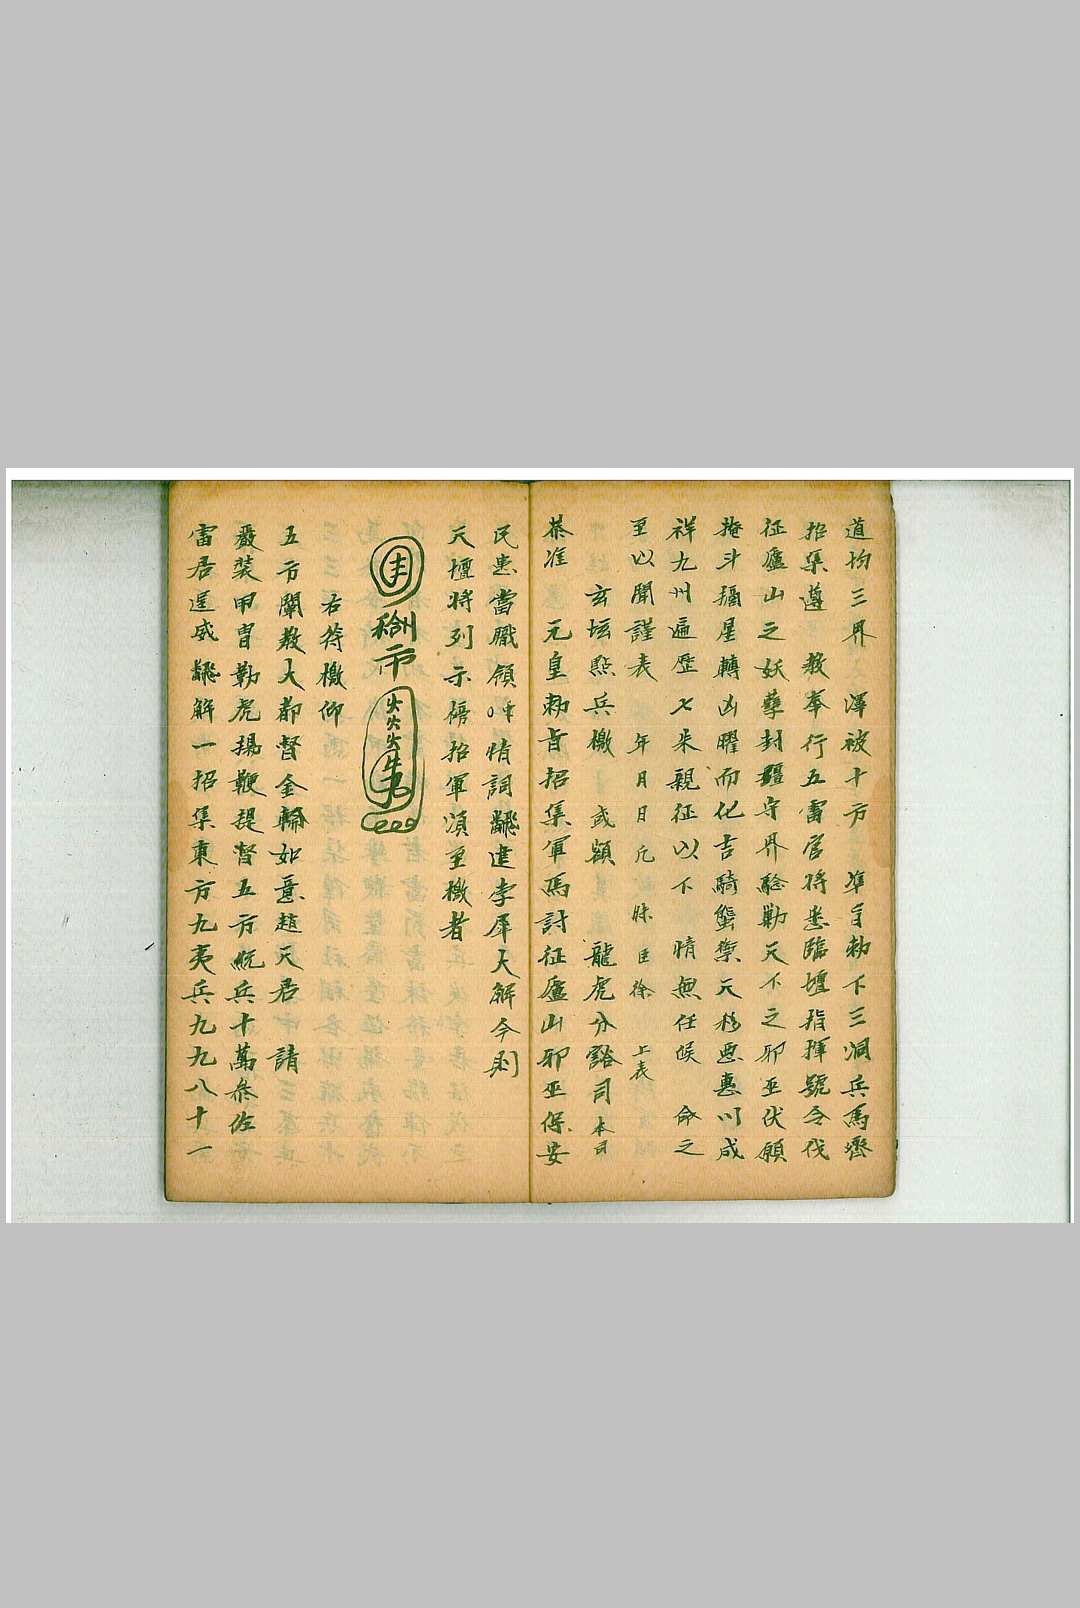 道均三界　澤被十方　準旨勅下三洞兵馬齊
招集遵　教奉行五雷官將悉臨壇指揮號令伐
征廬山之妖孽封疆守界驗勦天下之邪巫伏願
掩斗攝星轉凶曜而化吉騎蟹禦天移惡惠以成
祥九州遍歷七朱親征以下　情無任候　命之
至以聞謹表　年月日　臣徐　上表
玄坛點兵檄　或額　龍虎分豁司本司
恭准　元皇勅旨招集軍馬討征廬山邪巫保安
民患當職領 情詞 建李 大解今則
天壇將列示 招軍須至檄者
右符檄仰
五方闡教大都督金輪如意趙天君　請
嚴裝甲冑勒虎揚鞭提督五方統兵十萬叅佐
雷君逞威 解一招集東方九夷兵九九八十一